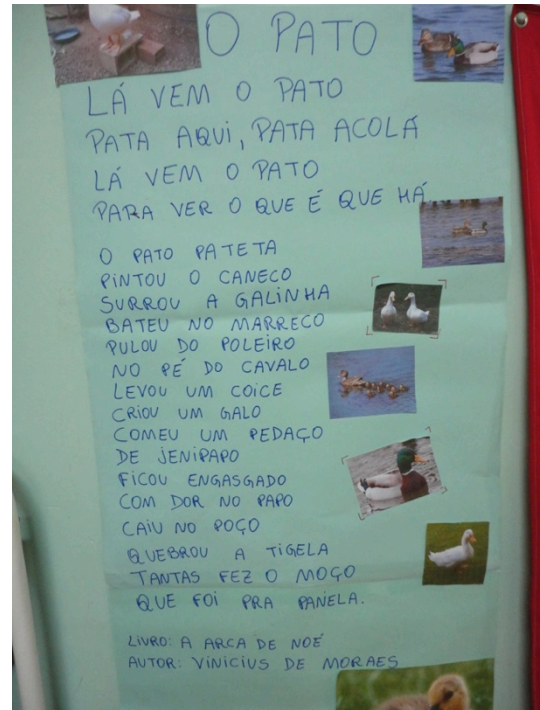 O PATO
LÁ VEM O PATO
PATA AQUI, PATA ACOLÁ
LÁ VEM O PATO
PARA VER O QUE É QUE HÁ.
O PATO PATETA
PINTOU O CANECO
SURROU A GALINHA
BATEU NO MARRECO
PULOU DO POLEIRO
NO PÉ DO CAVALO
LEVOU UM COICE
CRIOU UM GALO
COMEU UM PEDAÇO
DE JENIPAPO
FICOU ENGASGADO
COM DOR NO PAPO
CAIU NO POÇO
QUEBROU A TIGELA
TANTAS FEZ O MOÇO
QUE FOI PRA PANELA.
LIVRO: A ARCA DE NOÉ
AUTOR: VINICIUS DE MORAES